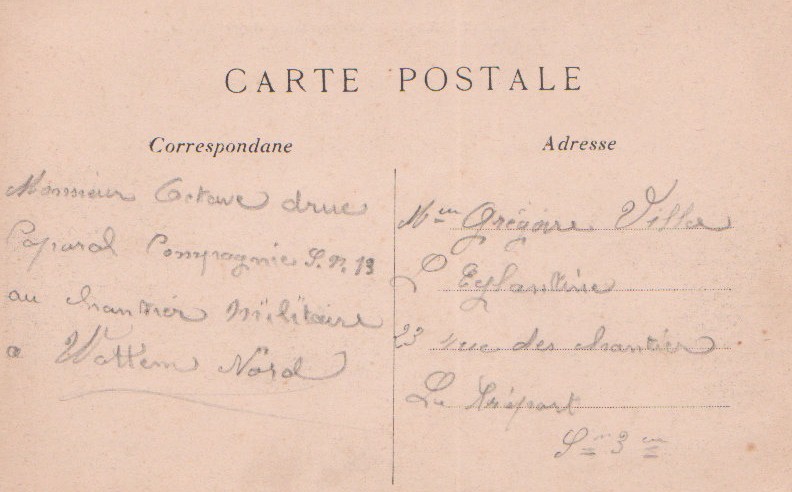 CARTE POSTALE
Correspondane
Monsieur Octave druc
Caparal Compagnie S.P. 13
au chantier Militaire
a Watten Nord
Adresse
Mr Grégoire Villa
L'Eglantine
23 rue des chantier
Le Tréport
Sne 3 re